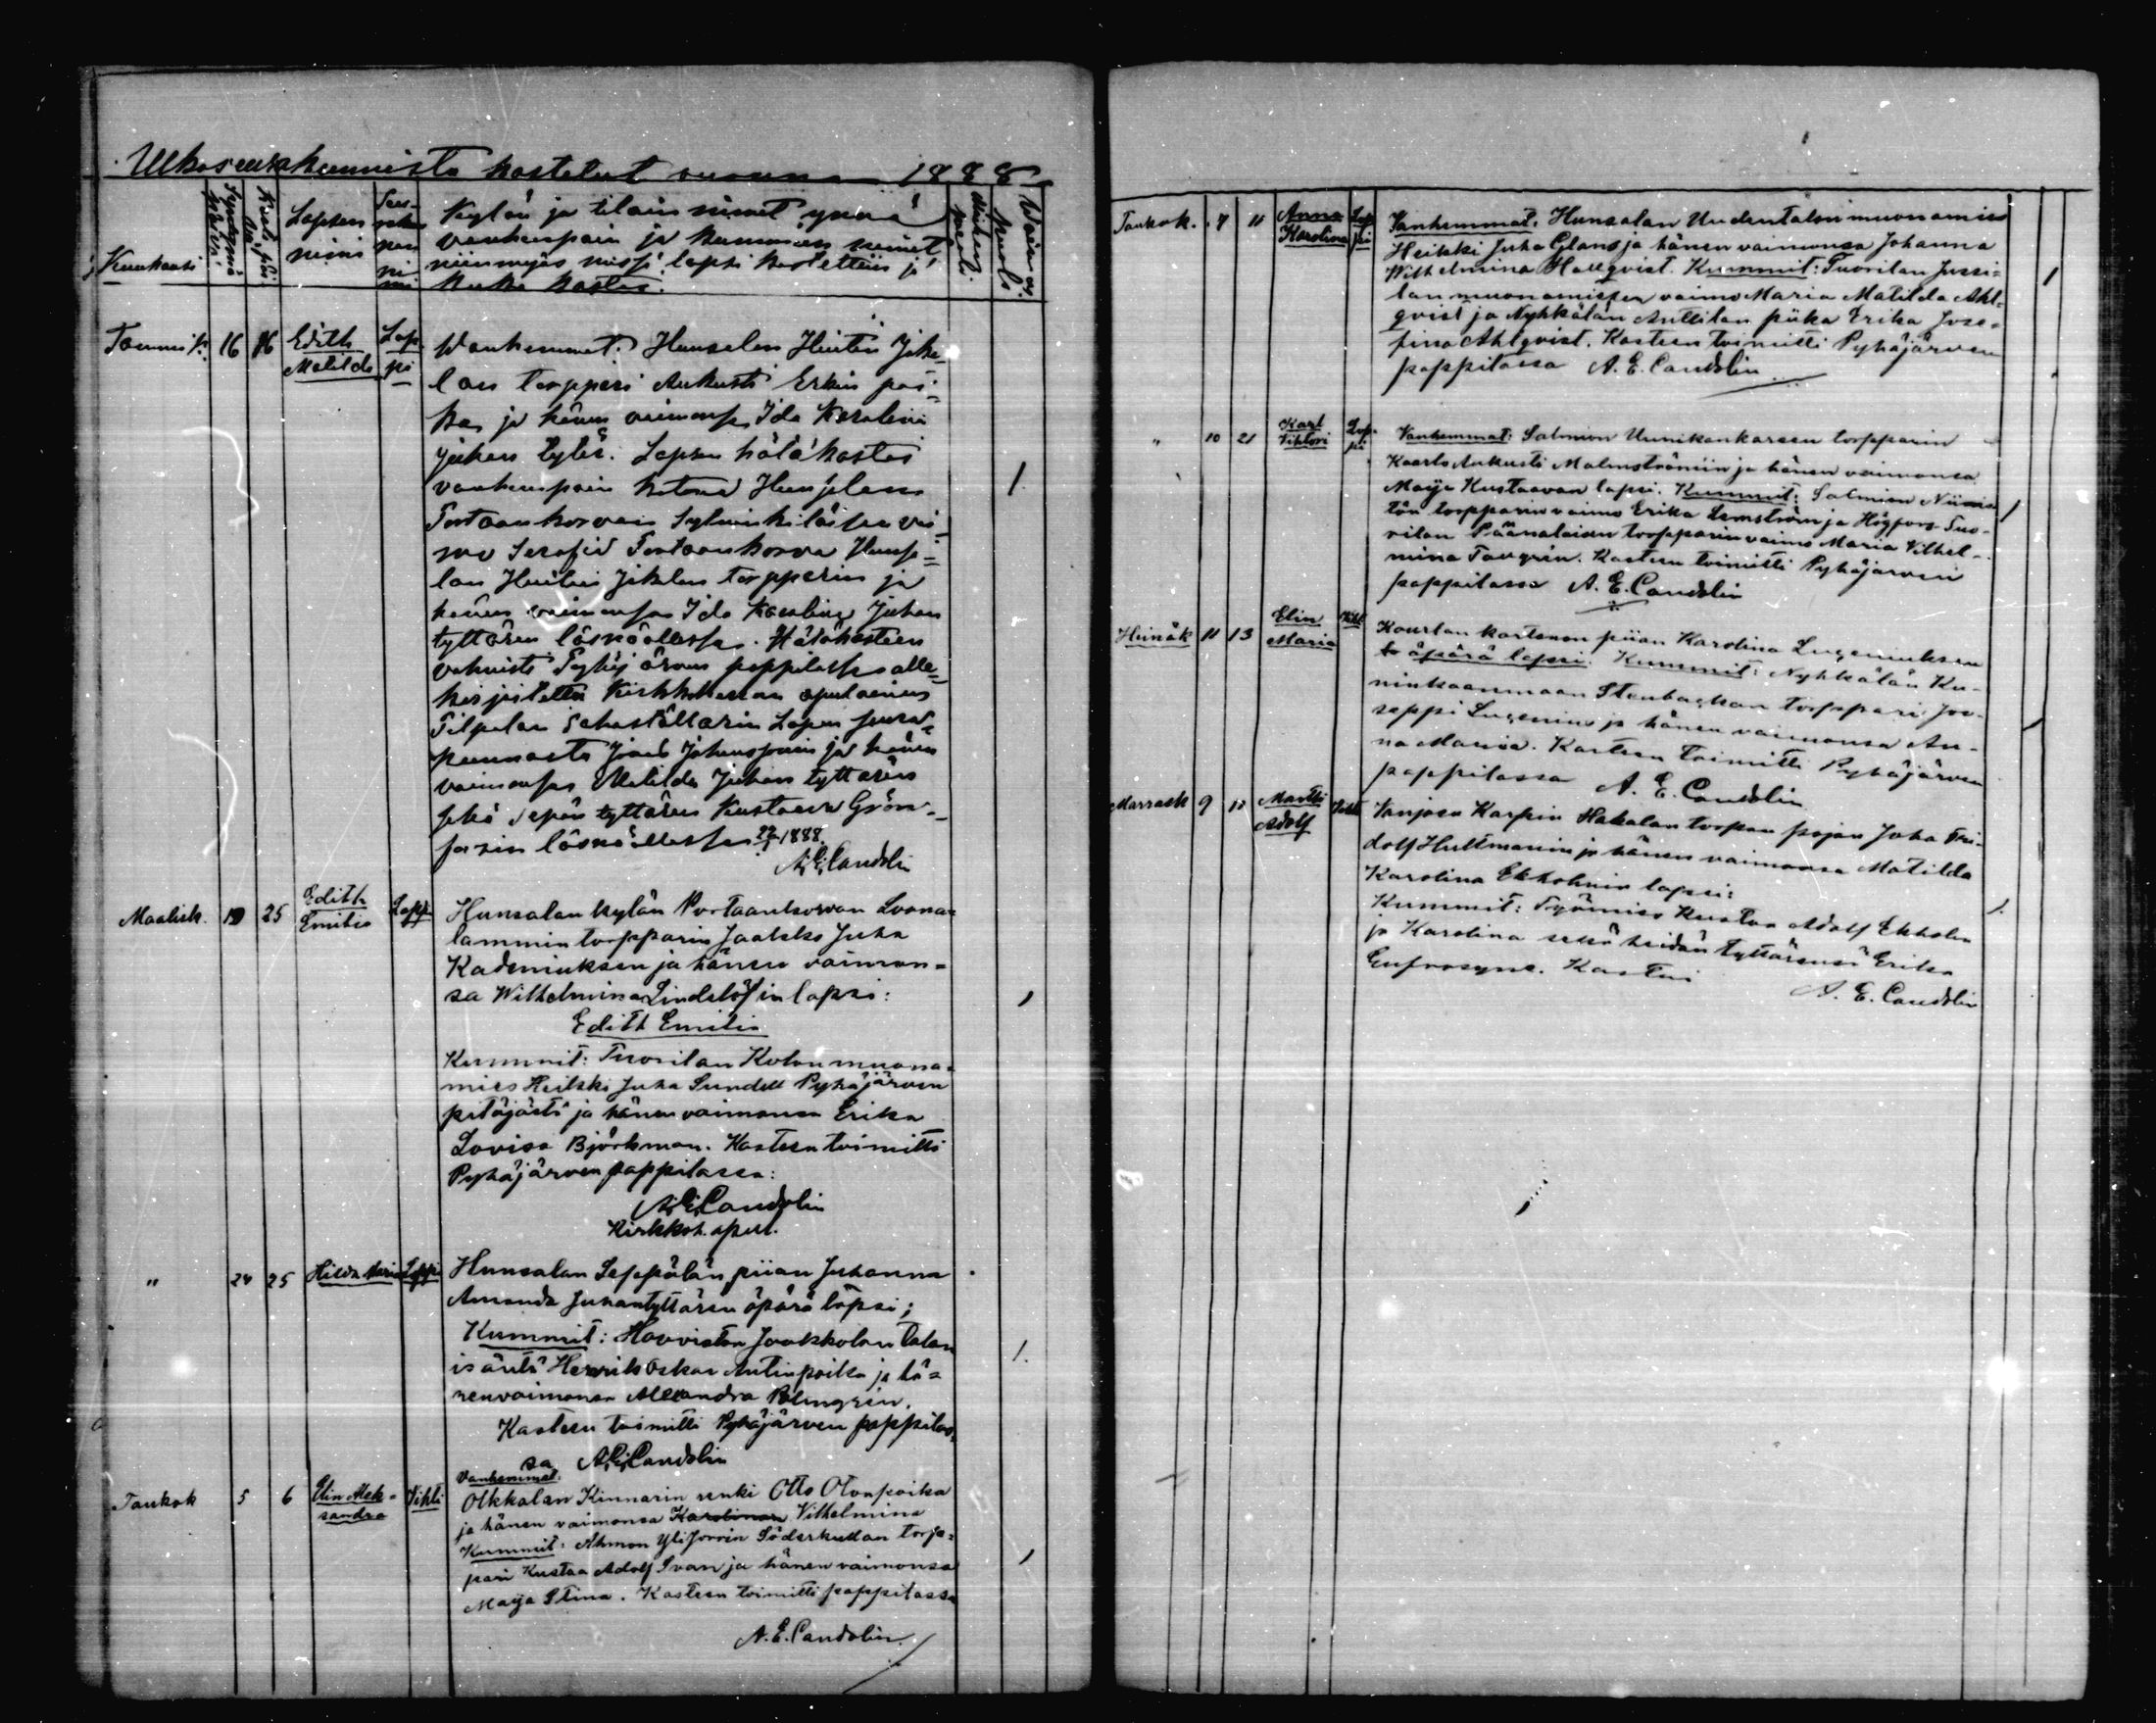 Ulkoseurakunnista kastetut vuonna 1888
Kuukausi
Syndymä päivä.
Lapsen nimi
Seurakunnan nimi
Kylän ja talon nimet ynnä
vanhenpain ja kummien nimet,
niinmyös missä lapsi kastettiin ja
kuka kastoi.
Tammik. 16 16 Edith Matilda Loppi
Wanhemmat: Hunsalan
lan torppari Aukusti Erkin poi-
ka ja hänen vaimonsa Ida Karolina
Juhan tytär. Lapsen hätäkastoi
vanhenpain kotona Hunsalan
Portaankorvan
Serafia Portaankorva Hunsa-
lan torpparin ja
hänen vaimonsa Ida Karolina Juhan
tyttären läsnäollessa. Hätäkasteen
vahvisti Pyhäjärven pappilassa alle-
kirjoitettu Kirkkoherran apulainen
Lopen seura-
kunnasta
vaimonsa Matilda Juhan tyttären
sekä Sepän tyttären Kustaava Grön-
läsnäollessa 1888.
A. E. Candolin
Maalisk. 19 25 Edith Emilia Loppi
Hunsalan kylän Portaankorvan
lammin torpparin Jaakko Juha
Kadeniuksen ja hänen vaimon-
sa Wilhelmina Lindelöf'in lapsi:
Edith Emilia
Kummit: Tuorilan Koton muona-
mies Heikki Juha Sundell Pyhäjärven
pitäjästä ja hänen vaimonsa Erika
Lovisa Björkman. Kasteen toimitti
Pyhäjärven pappilassa:
A. E. Candolin
Kirkkoh. apul.
" 24 25 Hilda Maria Loppi
Hunsalan Seppälän piian Juhanna
Amanda Juhantyttären äpärä lapsi;
Kummit: Haaviston Jaakkolan talon
isäntä Henrik Oskar Antinpoika ja hä-
nen vaimonsa Alexandra Palmgrén.
Kasteen toimitti Pyhäjärven pappilas-
sa A. E. Candolin
Toukok 5 6 Elin Alek-
sandra Vihti
Vanhemmat:
Olkkalan Kinnarin renki Otto Otonpoika
ja hänen vaimonsa Karolinan Vilhelmina
Kummit: Ahmon Ylijovvin Söderkullan torp-
pari Kustaa Adolf Ivan ja hänen vaimonsa
Maija Stina. Kasteen toimitti pappilassa
A. E. Candolin
Toukok. 7 11 Anna Karolina Loppi
Vanhemmat: Hunsalan Uudentalon muonamies
Heikki Juha Glans ja hänen vaimonsa Johanna
Wilhelmina Hallqvist. Kummit: Tuorilan Jussi-
lan muonamiehen vaimo Maria Matilda Ahl-
qvist ja Nyhkälän Anttilan piika Erika Jose-
fina Ahlqvist. Kasteen toimitti Pyhäjärven
pappilassa A. E. Candolin
" 10 21 Karl Viktori Loppi
Vanhemmat: Salmion Unnikankareen torpparin
Kaarlo Aukusti Malmströmiin ja hänen vaimonsa
Maija Kustaavan lapsi. Kummit: Salmion Niinis-
tön torpparin vaimo Erika Lemström ja Högfors Tuo-
rilan Päänalaisen torpparin vaimo Maria Vilhel-
mina Tavgrén. Kasteen toimitti Pyhäjärven
pappilassa A. E. Candolin
Heinäk 11 13 Elin Maria Vihti
Kourlan kartanon piian Karolina Lugeniuksen
äpärä lapsi. Kummit: Nyhkälän Ku-
ninkaanmaan Stenbackan torppari Joo-
seppi Lugenius ja hänen vaimonsa An-
na Maria. Kasteen toimitti Pyhäjärven
pappilassa A. E. Candolin
Marrask 9 11 Martti Adolf Vihti
Vanjoen Karpin Hakalan torpan pojan Juha Fri-
dolf Hultmanin ja hänen vaimonsa Matilda
Karolina Ekholmin lapsi:
Kummit: Työmies Kustaa Adolf Ekholm
ja Karolina sekä heidän tyttärensä Erika
Eufrosyne. Kastoi
A. E. Candolin